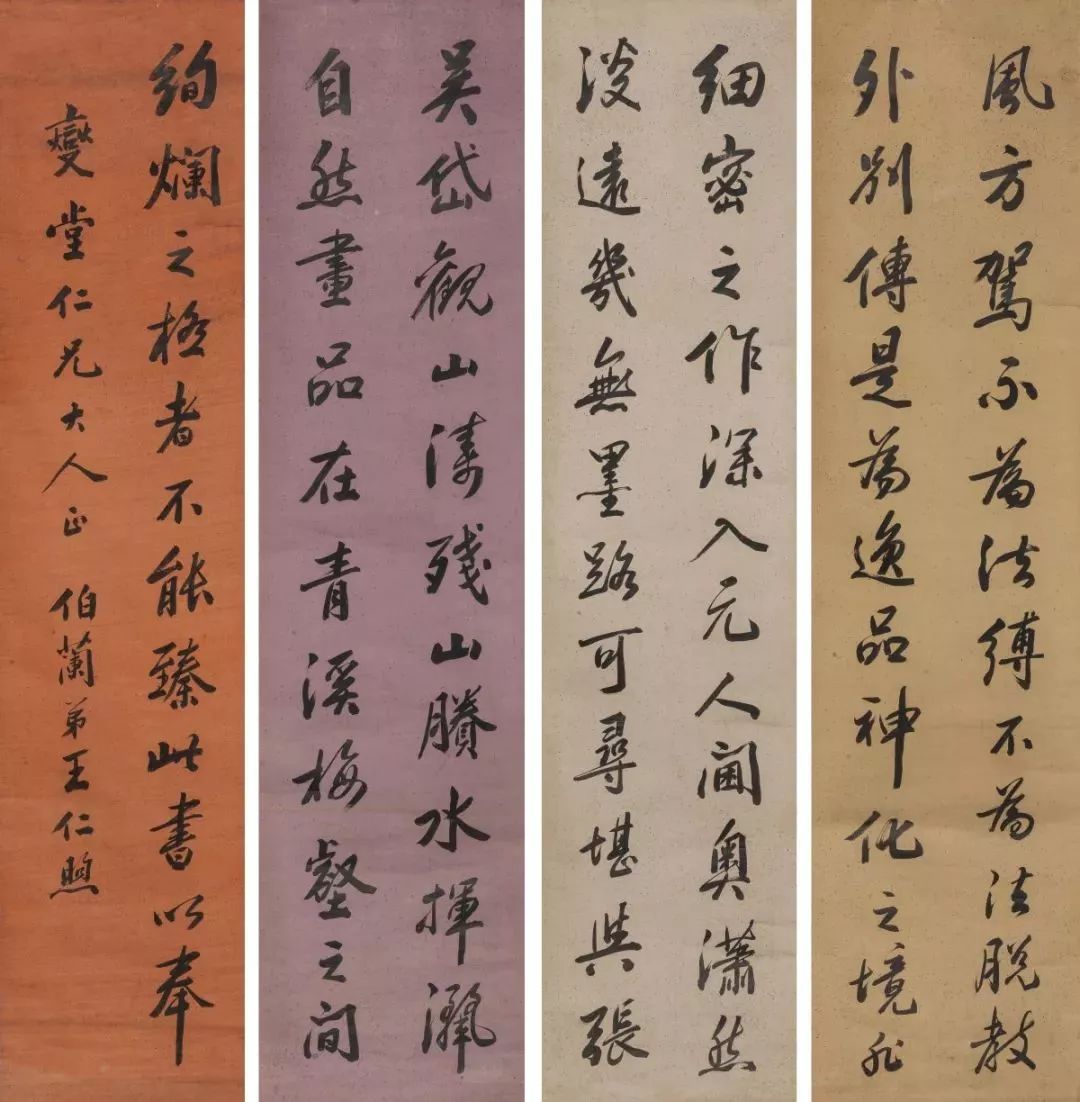 風方駕不為法縛不為法脫教
外別傳是為逸品神化之境非
細密之作深入元人閫奧瀟然
淡遠幾無墨路可尋堪與張
吳岱觀山濤殘山賸水揮灑
自然畫品在青溪梅壑之間
絢爛之極者不能臻此書以奉
燮堂仁兄大人正 伯蘭弟王仁煦